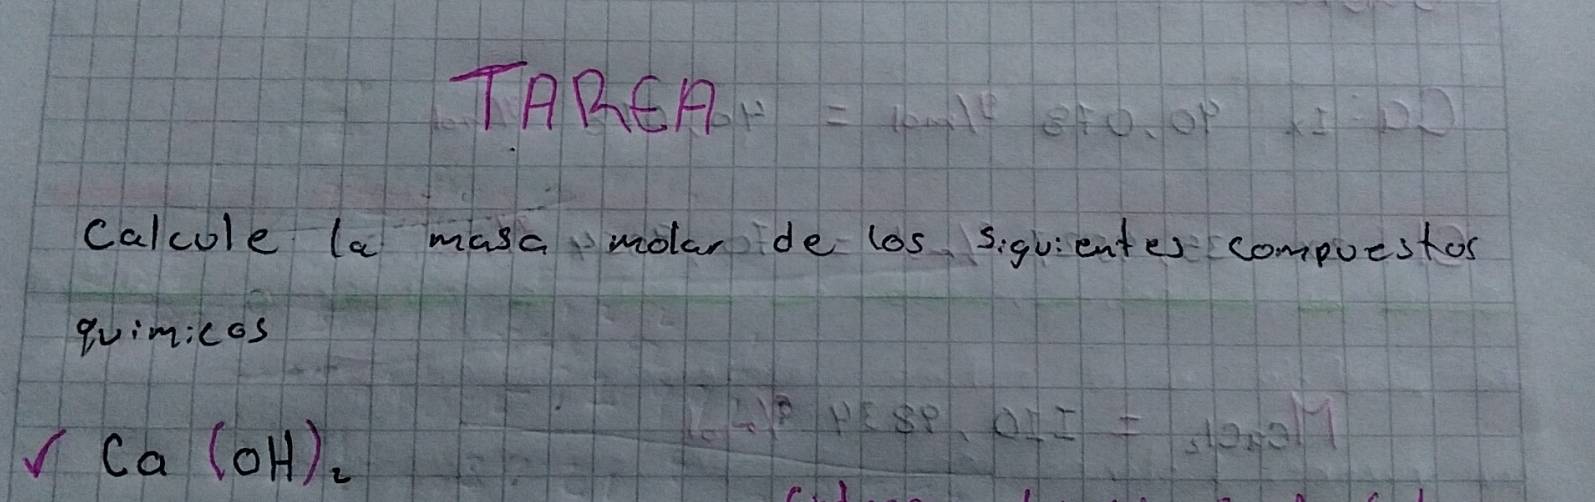 TAREA
Calcule la masa molar de los siguientes compuestos
quimicos
✓ Ca (OH)₂